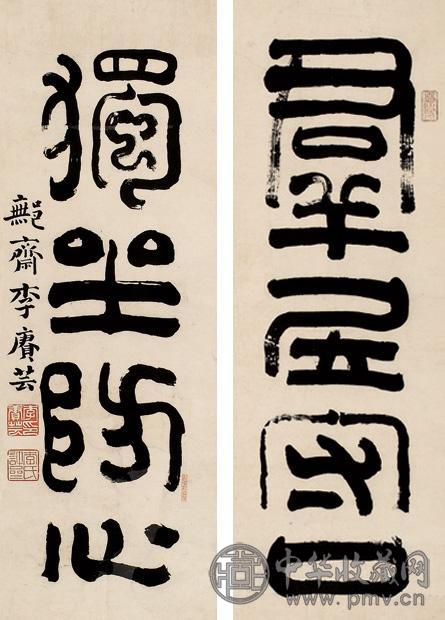 羣居守口
獨坐防心
鄦齋李賡芸
中华收藏网
www.pmv.cn